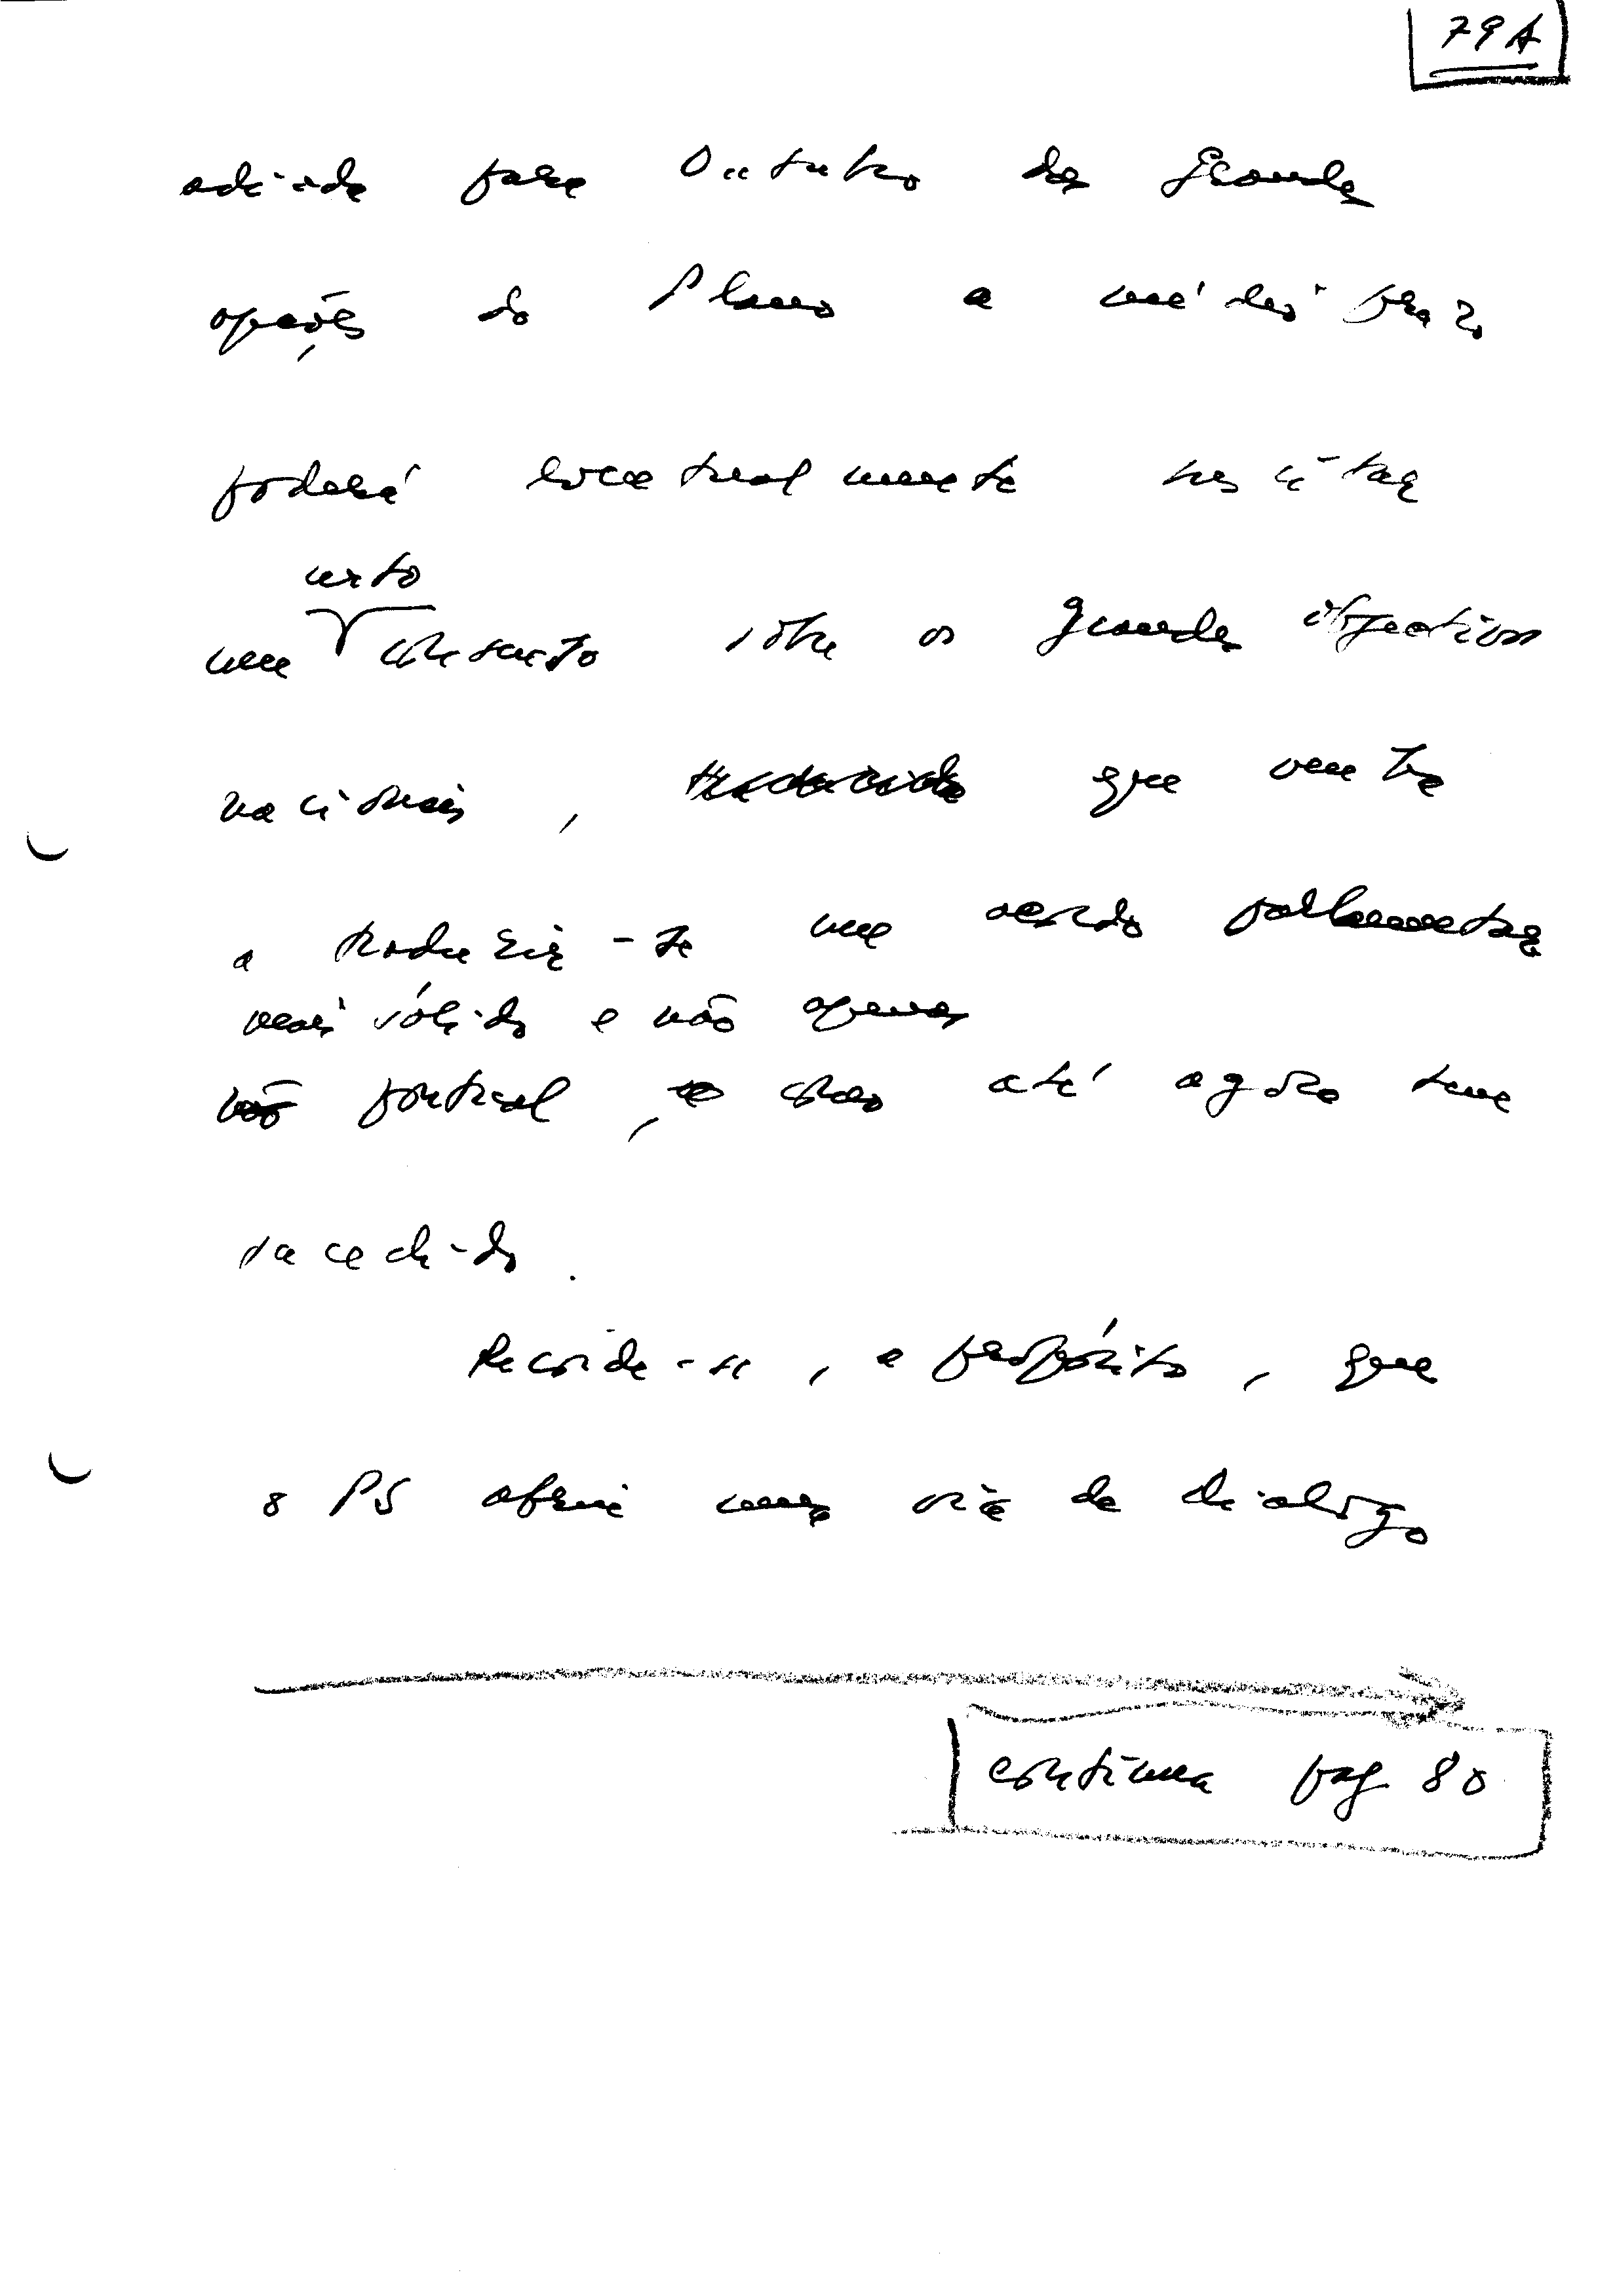 79A
adiada para Outubro das grandes
opções do Plano a médio prazo
poderá eventualmente suscitar
certo
um consenso sobre os grandes objectivos
nacionais, que venha
a traduzir-se num acordo parlamentar
mais sólido e não apenas
pontual, como até agora tem
sucedido.
Recorde-se, a propósito, que
o PS abriu uma via de dialogo
continua pag 80